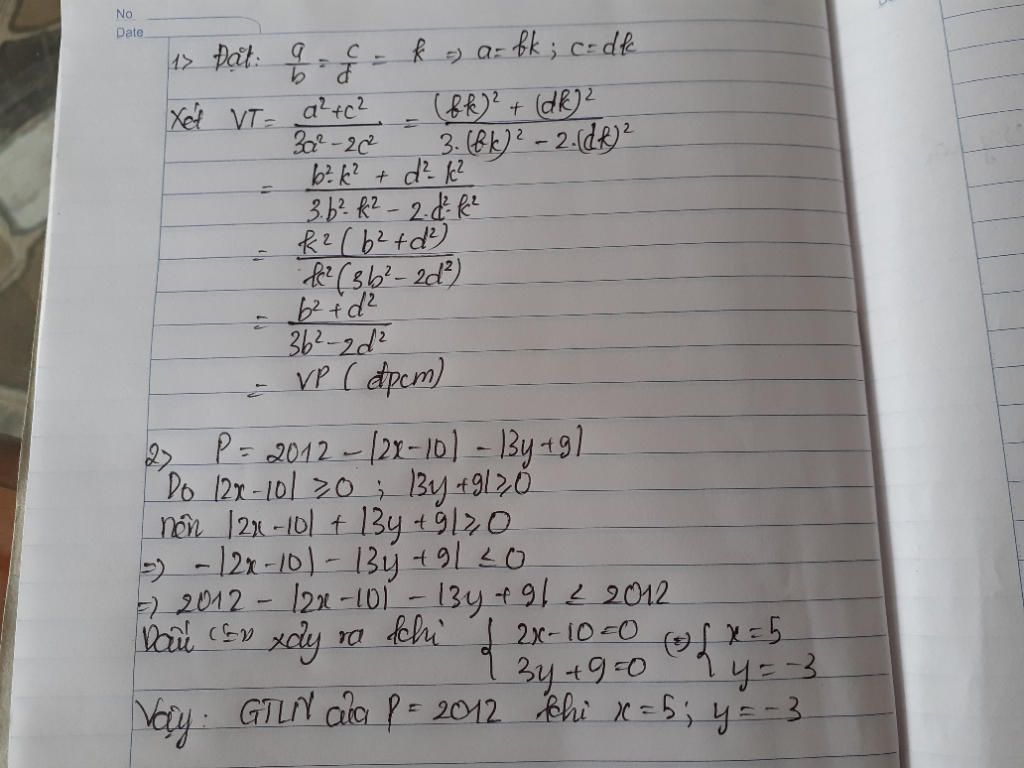 No
Date
1> Đặt: a/b = c/d = k => a = bk ; c = dk
Xét VT = (a² + c²)/(3a² - 2c²) = ((bk)² + (dk)²)/(3.(bk)² - 2.(dk)²)
= (b².k² + d².k²)/(3.b².k² - 2.d².k²)
= (k²(b² + d²))/(k²(3b² - 2d²))
= (b² + d²)/(3b² - 2d²)
= VP (đpcm)
2> P = 2012 - |2x - 10| - |3y + 9|
Do |2x - 10| ≥ 0 ; |3y + 9| ≥ 0
nên |2x - 10| + |3y + 9| ≥ 0
=> - |2x - 10| - |3y + 9| ≤ 0
=> 2012 - |2x - 10| - |3y + 9| ≤ 2012
Dấu "=" xảy ra khi { 2x - 10 = 0 (=) { x = 5
3y + 9 = 0 y = -3
Vậy: GTLN của P = 2012 khi x = 5 ; y = -3